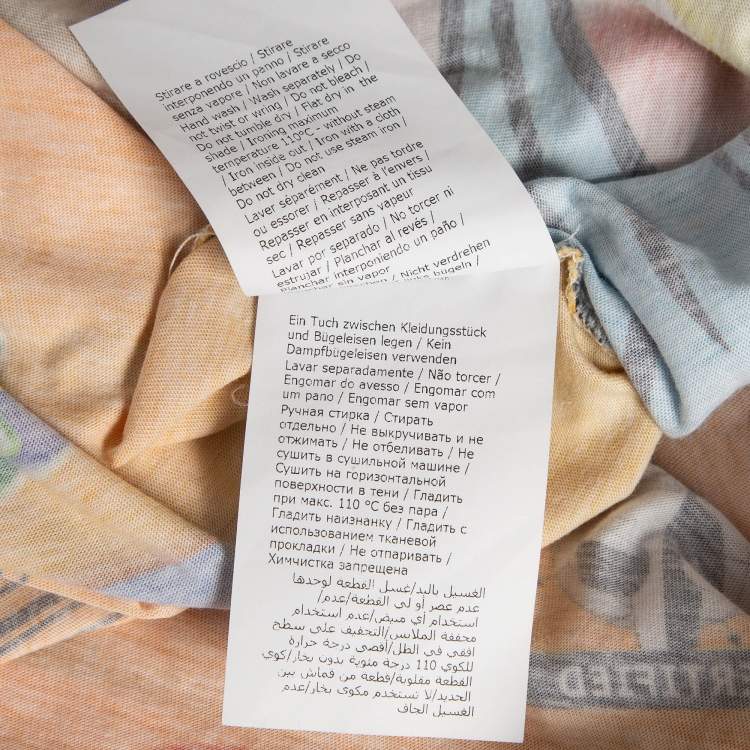 Stirare a rovescio / Stirare
interponendo un panno / Stirare
senza vapore / Non lavare a secco
Hand wash / Wash separately / Do
not twist or wring / Do not bleach /
Do not tumble dry / Flat dry in the
shade / Ironing maximum
temperature 110°C - without steam
/ Iron inside out / Iron with a cloth
between / Do not use steam iron /
Do not dry clean
Laver séparément / Ne pas tordre
ou essorer / Repasser à l'envers /
Repasser en interposant un tissu
sec / Repasser sans vapeur
Lavar por separado / No torcer ni
estrujar / Planchar al revés /
Planchar interponiendo un paño /
Planchar sin vapor
/ Nicht verdrehen
bügeln /
Ein Tuch zwischen Kleidungsstück
und Bügeleisen legen / Kein
Dampfbügeleisen verwenden
Lavar separadamente / Não torcer /
Engomar do avesso / Engomar com
um pano / Engomar sem vapor
Ручная стирка / Стирать
отдельно / Не выкручивать и не
отжимать / Не отбеливать / Не
сушить в сушильной машине /
Сушить на горизонтальной
поверхности в тени / Гладить
при макс. 110 °C без пара /
Гладить наизнанку / Гладить с
использованием тканевой
прокладки / Не отпаривать /
Химчистка запрещена
الغسيل باليد/غسيل القطعة لوحدها
/عدم عصر أو لي القطعة/عدم
استخدام أي مبيض/عدم استخدام
مجففة الملابس/التجفيف على سطح
افقي في الظل/أقصى درجة حرارة
للكوي 110 درجة مئوية بدون بخار/كوي
القطعة مقلوبة/قطعة من قماش بين
الحديد/لا تستخدم مكوى بخار/عدم
الغسيل الجاف
ERTIFIED